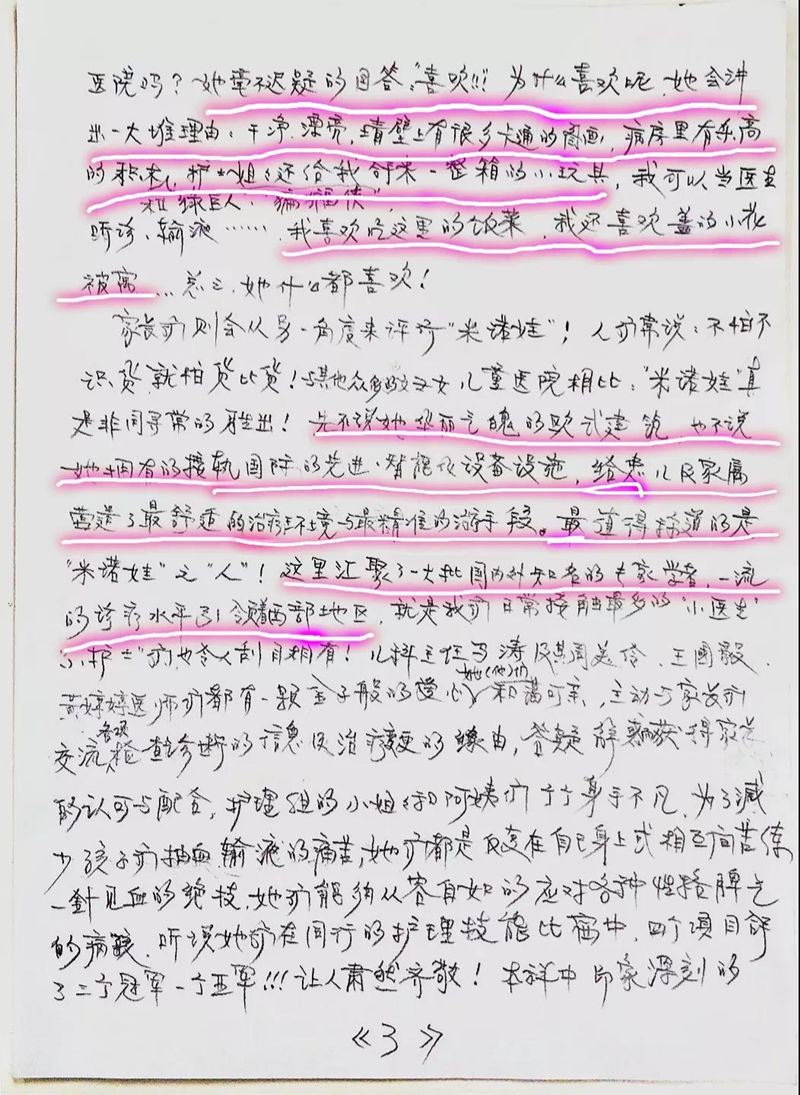 医院吗？她毫不迟疑的回答：“喜欢!!! 为什么喜欢呢，她会讲
出一大堆理由：干净、漂亮，墙壁上有很多卡通的图画，病房里有乐高
的积木，护士姐姐还给我拿来一整箱的小玩具，我可以当医生
和绿巨人…蝙蝠侠”
听诊、输液……我喜欢吃这里的饭菜，我还喜欢盖的小花
被窝…总之，她什么都喜欢！
家长们则会从另一角度来评价“米诺娃”！人们常说：不怕不
识货就怕货比货！与其他众多的妇女儿童医院相比：“米诺娃”真
是非同寻常的胜出！先不说她华丽气魄的欧式建筑，也不说
她拥有的接轨国际的先进、智能化设备设施，给患儿及家属
营造了最舒适的治疗环境与最精准的治疗手段。最值得称道的是
“米诺娃”之“人”！这里汇聚了一大批国内外知名的专家学者，一流
的诊疗水平引领着西部地区，就是我们日常接触最多的“小医生”
小护士”们也令人刮目相看！儿科主任马涛及其周美伶、王国毅、
黄婷婷医师们都有一颗金子般的爱心，她(他)们和蔼可亲，主动与家长们
交流各项检查诊断的信息及治疗变更的缘由，答疑解惑获得家长
的认可与配合，护理组的小姐姐和阿姨们个个身手不凡，为了减
少孩子们抽血输液的痛苦，她们都是反复在自己身上或相互间苦练
一针见血的绝技，她们能够从容自如的应对各种性格脾气
的病孩，听说她们在同行的护理技能比赛中，四个项目
了三个冠军一个亚军!!! 让人肃然齐敬！本科中印象深刻的
《3》